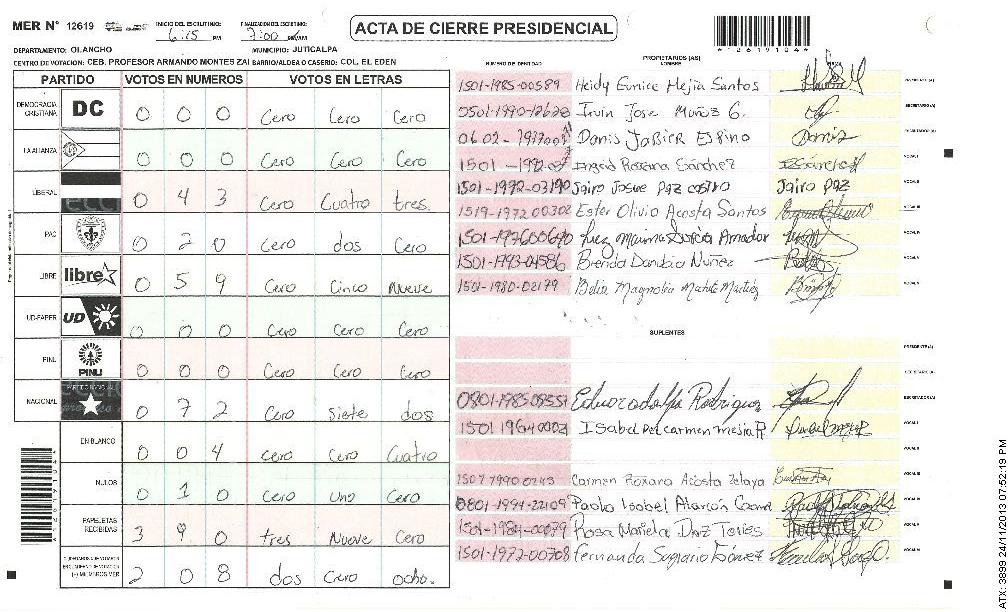 MER N° 12619 INICIO DEL ESCRUTINIO: 6:15 PM FINALIZACION DEL ESCRUTINIO: 7:00 PM/AM
ACTA DE CIERRE PRESIDENCIAL
*12619104*
DEPARTAMENTO: OLANCHO MUNICIPIO: JUTICALPA
CENTRO DE VOTACION: CEB. PROFESOR ARMANDO MONTES ZAI BARRIO/ALDEA O CASERIO: COL. EL EDEN
PARTIDO VOTOS EN NUMEROS VOTOS EN LETRAS
DEMOCRACIA CRISTIANA DC 0 0 0 Cero Cero Cero
LA ALIANZA 0 0 0 Cero Cero Cero
LIBERAL 0 4 3 Cero Cuatro tres.
PAC 0 2 0 Cero dos Cero
LIBRE libre 0 5 9 Cero Cinco Nueve
UD-FAPER UD 0 0 0 Cero Cero Cero
PINU PINU 0 0 0 Cero Cero Cero
NACIONAL 0 7 2 Cero Siete dos
EN BLANCO 0 0 4 Cero Cero Cuatro
NULOS 0 1 0 Cero Uno Cero
PAPELETAS RECIBIDAS 3 9 0 tres Nueve Cero
2 0 8 dos Cero ocho.
NUMERO DE IDENTIDAD PROPIETARIOS (AS) NOMBRE FIRMA
1501-1985-00589 Heidy Eunice Mejia Santos PRESIDENTE (A)
0501-1990-12628 Irvin Jose Muñoz G. SECRETARIO (A)
0602- Danis Jabier Espino Danis ESCRUTADOR (A)
1501- Ingrid Roxana Sánchez VOCAL I
1501-1992-03190 Jairo Josue Paz castro Jairo Paz VOCAL II
1519-1972 00302 Ester Olivio Acosta Santos VOCAL III
1501-197600690 Amador VOCAL IV
1501-1993-04586 Brenda Danubia Nuñez VOCAL V
1501-1980-02179 Belia Magnolia Matute VOCAL VI
SUPLENTES
PRESIDENTE (A)
SECRETARIO (A)
0801-1985-05557 Rodriguez ESCRUTADOR (A)
1501 1964 0002 Isabel Del carmen mejia R VOCAL I
VOCAL II
1507 1990 0243 Carmen Roxana Acosta Zelaya VOCAL III
0801-1994-22109 Paola Isabel Alarcón VOCAL IV
1501-1984-00079 Rosa Mariela Diaz Torres VOCAL V
1501-1972-00708 Fernanda Sagrario Gómez VOCAL VI
ATX: 3899 24/11/2013 07:52:19 PM